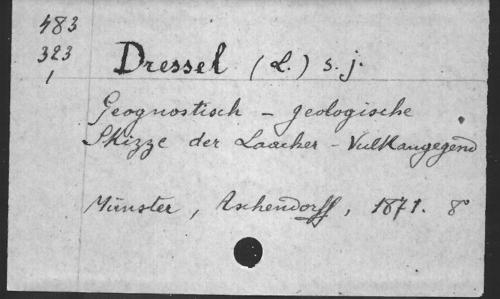 483
323
1
Dressel (L.) s. j.
Geognostisch - geologische
Skizze der Laacher - Vulkangegend
Münster, Aschendorff, 1871. 8°